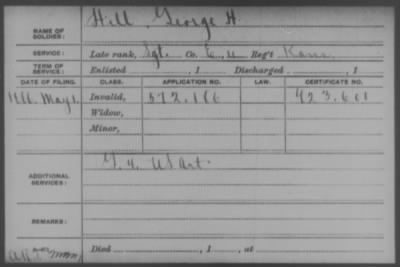 NAME OF SOLDIER: Hill George H.
SERVICE: Late rank, Sgt. Co. E, 11 Reg't Kans.
TERM OF SERVICE: Enlisted , 1 Discharged , 1
DATE OF FILING. CLASS. APPLICATION NO. LAW. CERTIFICATE NO.
May 1. Invalid, 572.186 423.601
Widow,
Minor,
ADDITIONAL SERVICES: US Art.
REMARKS:
Died , 1 , at